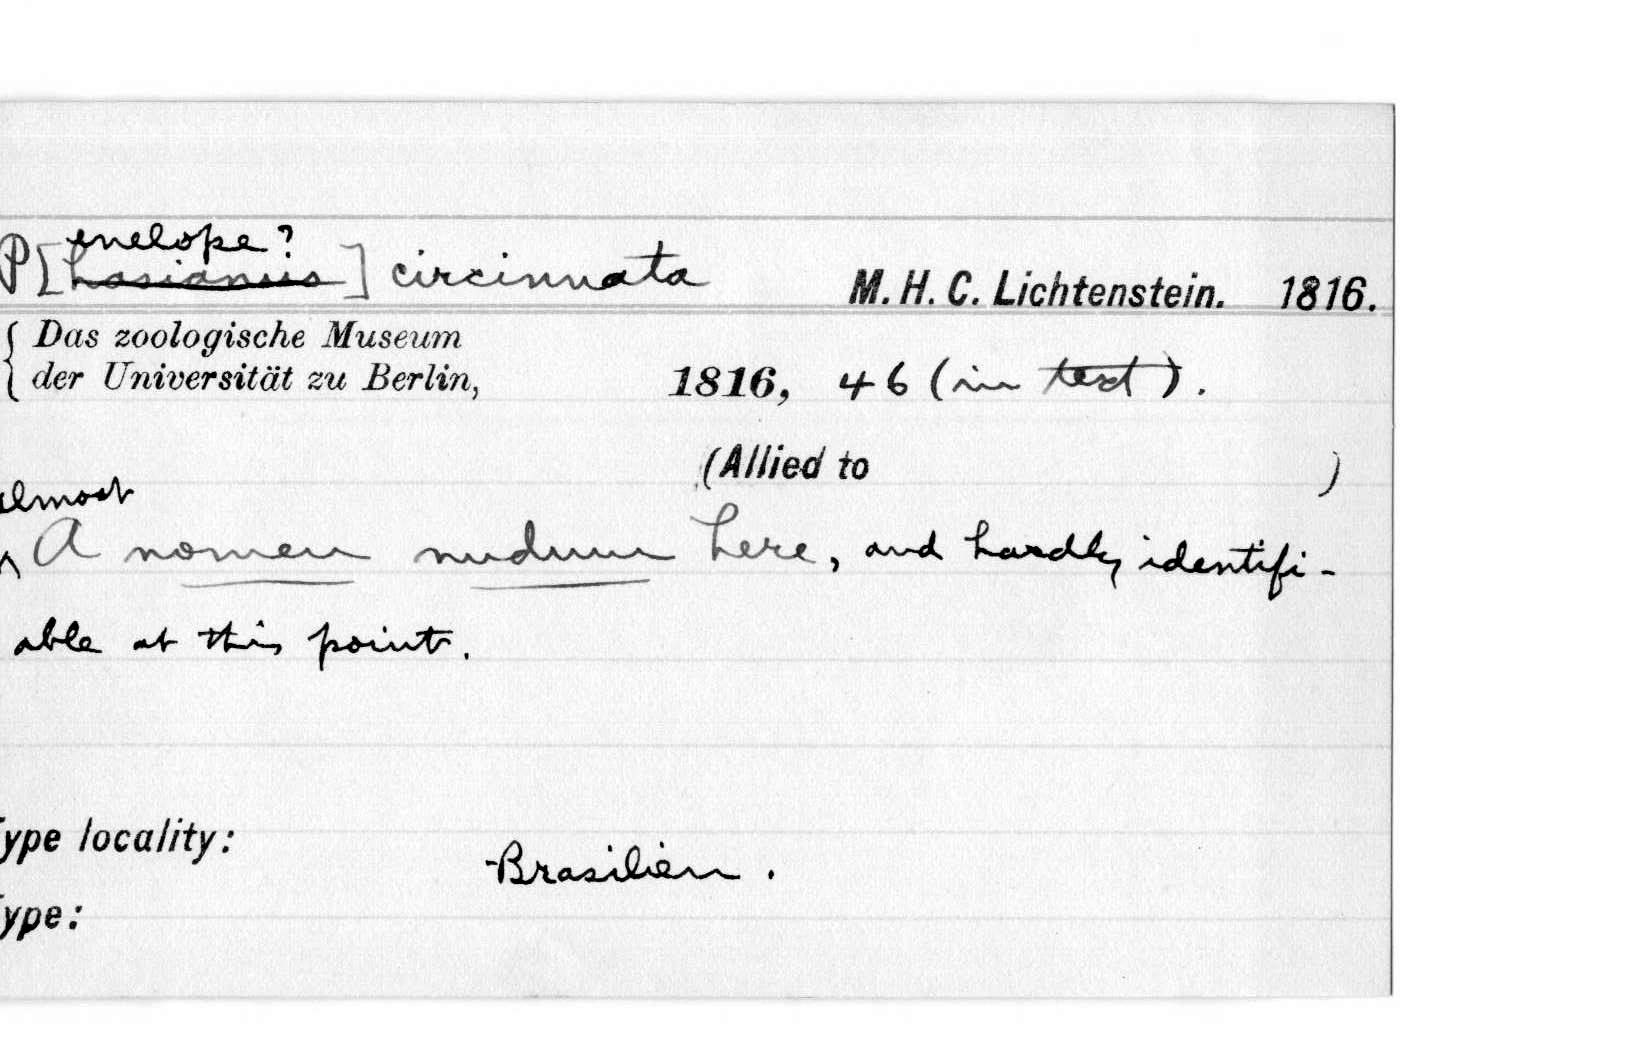 enelope?
P[hasianus] circinnata M. H. C. Lichtenstein. 1816.
{ Das zoologische Museum
der Universität zu Berlin, 1816, 46 (in text).
(Allied to )
almost
^ A nomen nudum here, and hardly identifi-
able at this point.
Type locality: Brasilien.
Type: